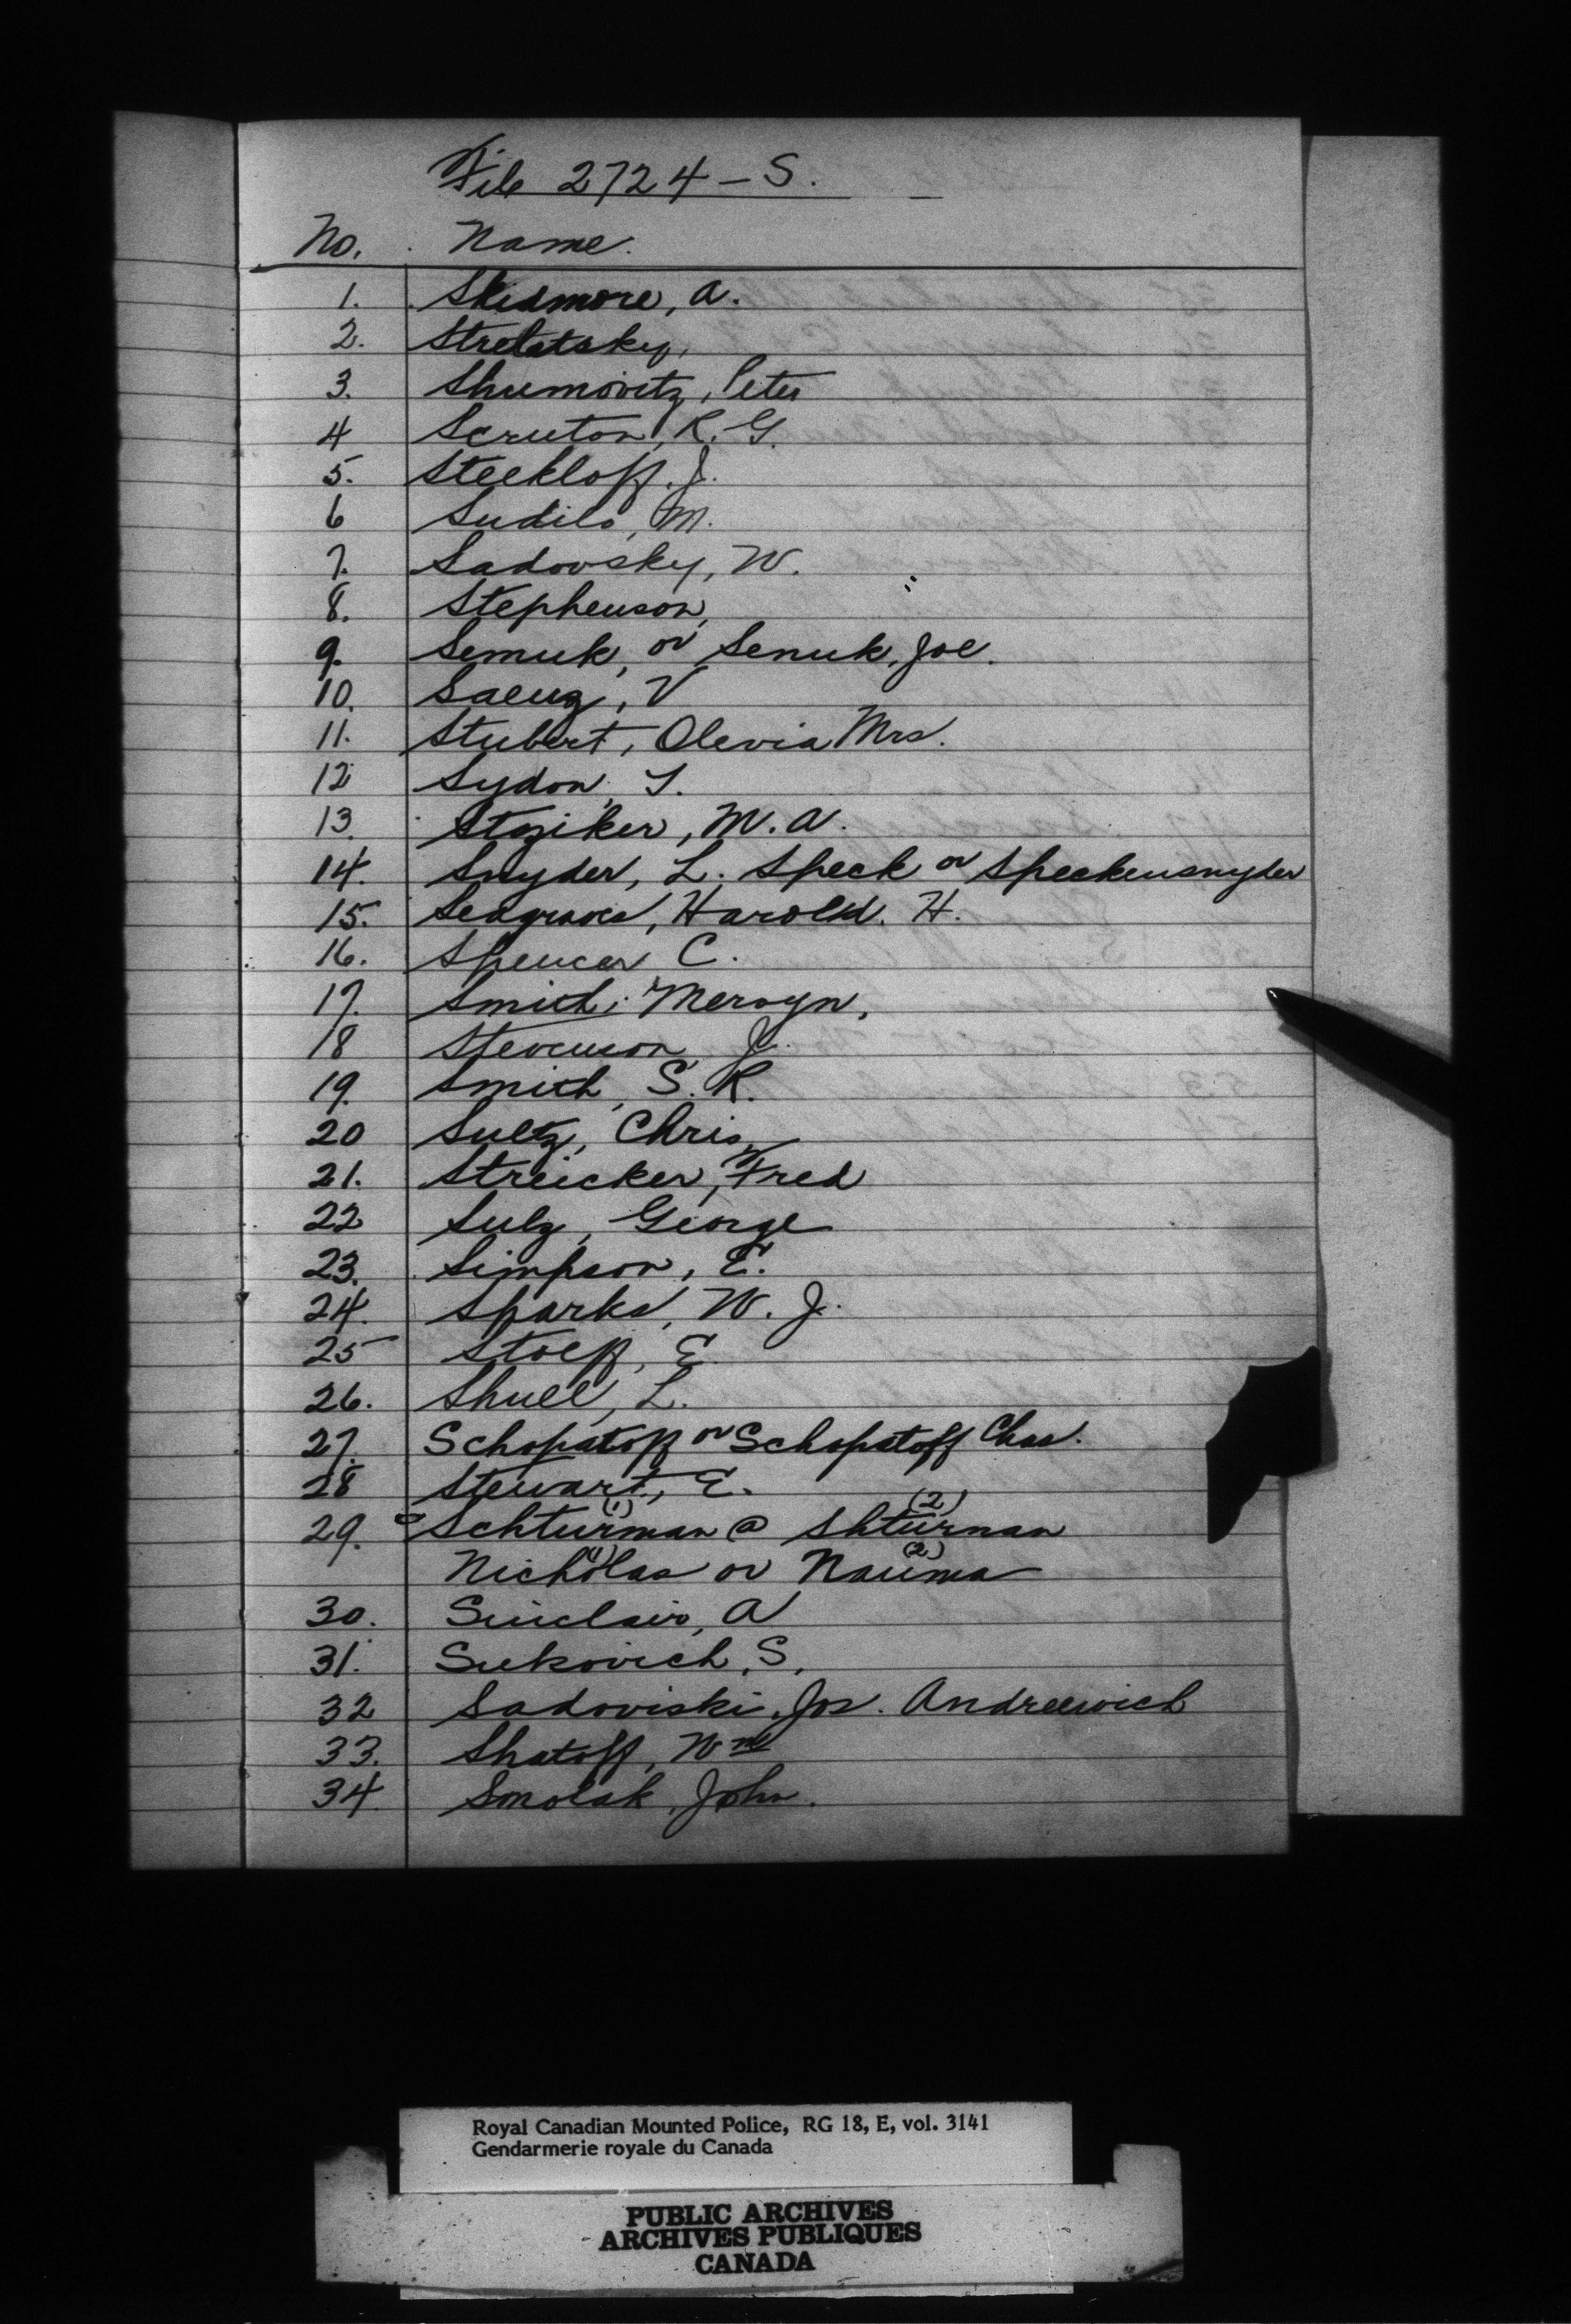 File 2724-S.
No. Name.
1. Skidmore, A.
2. Streletsky,
3. Shumovitz, Peter
4 Scruton, R. G.
5. Steekloff, J.
6 Sudilo, M.
7. Sadovsky, W.
8. Stephenson,
9. Semuk, or Senuk, Joe.
10. Saenz, V
11. Stubert, Olevia Mrs.
12 Sydon, T.
13. Stoziker, M. A.
14. Snyder, L. Speck or Speckensnyder
15. Seagraves, Harold. H.
16. Spencer C.
17. Smith, Mervyn,
18 Stevenson J.
19. Smith, S. R.
20 Sultz, Chris,
21. Streicker, Fred
22 Sulz, George
23. Simpson, E.
24. Sparks, W. J.
25 Stoeff, E.
26. Shuel, L.
27. Schopatoff or Schopstoff Chas.
28 Stewart, E.
29. Schturman (1) @ Shturman (2)
Nicholas (1) or Nauma (2)
30. Sinclair, A
31. Sukovich, S,
32 Sadoviski, Jos. Andreewich
33. Shatoff, Wm
34. Smolak, John.
Royal Canadian Mounted Police, RG 18, E, vol. 3141
Gendarmerie royale du Canada
PUBLIC ARCHIVES
ARCHIVES PUBLIQUES
CANADA